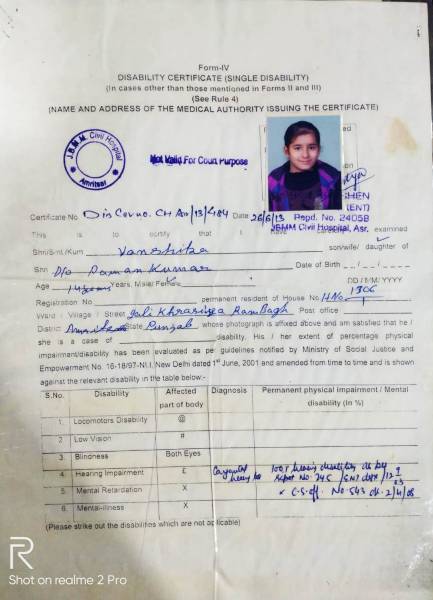 Form-IV
DISABILITY CERTIFICATE (SINGLE DISABILITY)
(In cases other than those mentioned in Forms II and III)
(See Rule 4)
(NAME AND ADDRESS OF THE MEDICAL AUTHORITY ISSUING THE CERTIFICATE)
J.B.M.M. Civil Hospital
Amritsar
Not Valid For Court Purpose
Certificate No. Date 26/6/13 Regd. No. 24058
JBMM Civil Hospital, Asr.
This is to certify that I have examined
Shri/Smt./Kum Vanshika son/wife/ daughter of
Shri D/o Raman Kumar Date of Birth
Age 14 Years, Male/ Female DD / MM / YYYY
Registration No. permanent resident of House No. H.No. 1306
Ward / Village / Street Gali Rambagh Post office
District Amritsar State Punjab whose photograph is affixed above and am satisfied that he /
she is a case of disability. His / her extent of percentage physical
impairment/disability has been evaluated as per guidelines notified by Ministry of Social Justice and
Empowerment No. 16-18/97-NI.I. New Delhi dated 1st June, 2001 and amended from time to time and is shown
against the relevant disability in the table below:-
S.No. Disability Affected part of body Diagnosis Permanent physical impairment / Mental disability (In %)
1. Locomotors Disability @
2. Low Vision #
3. Blindness Both Eyes
4. Hearing Impairment £ 100% hearing disability as per
5. Mental Retardation X No. 543
6. Mental-illness X
(Please strike out the disabilities which are not applicable)
R
Shot on realme 2 Pro